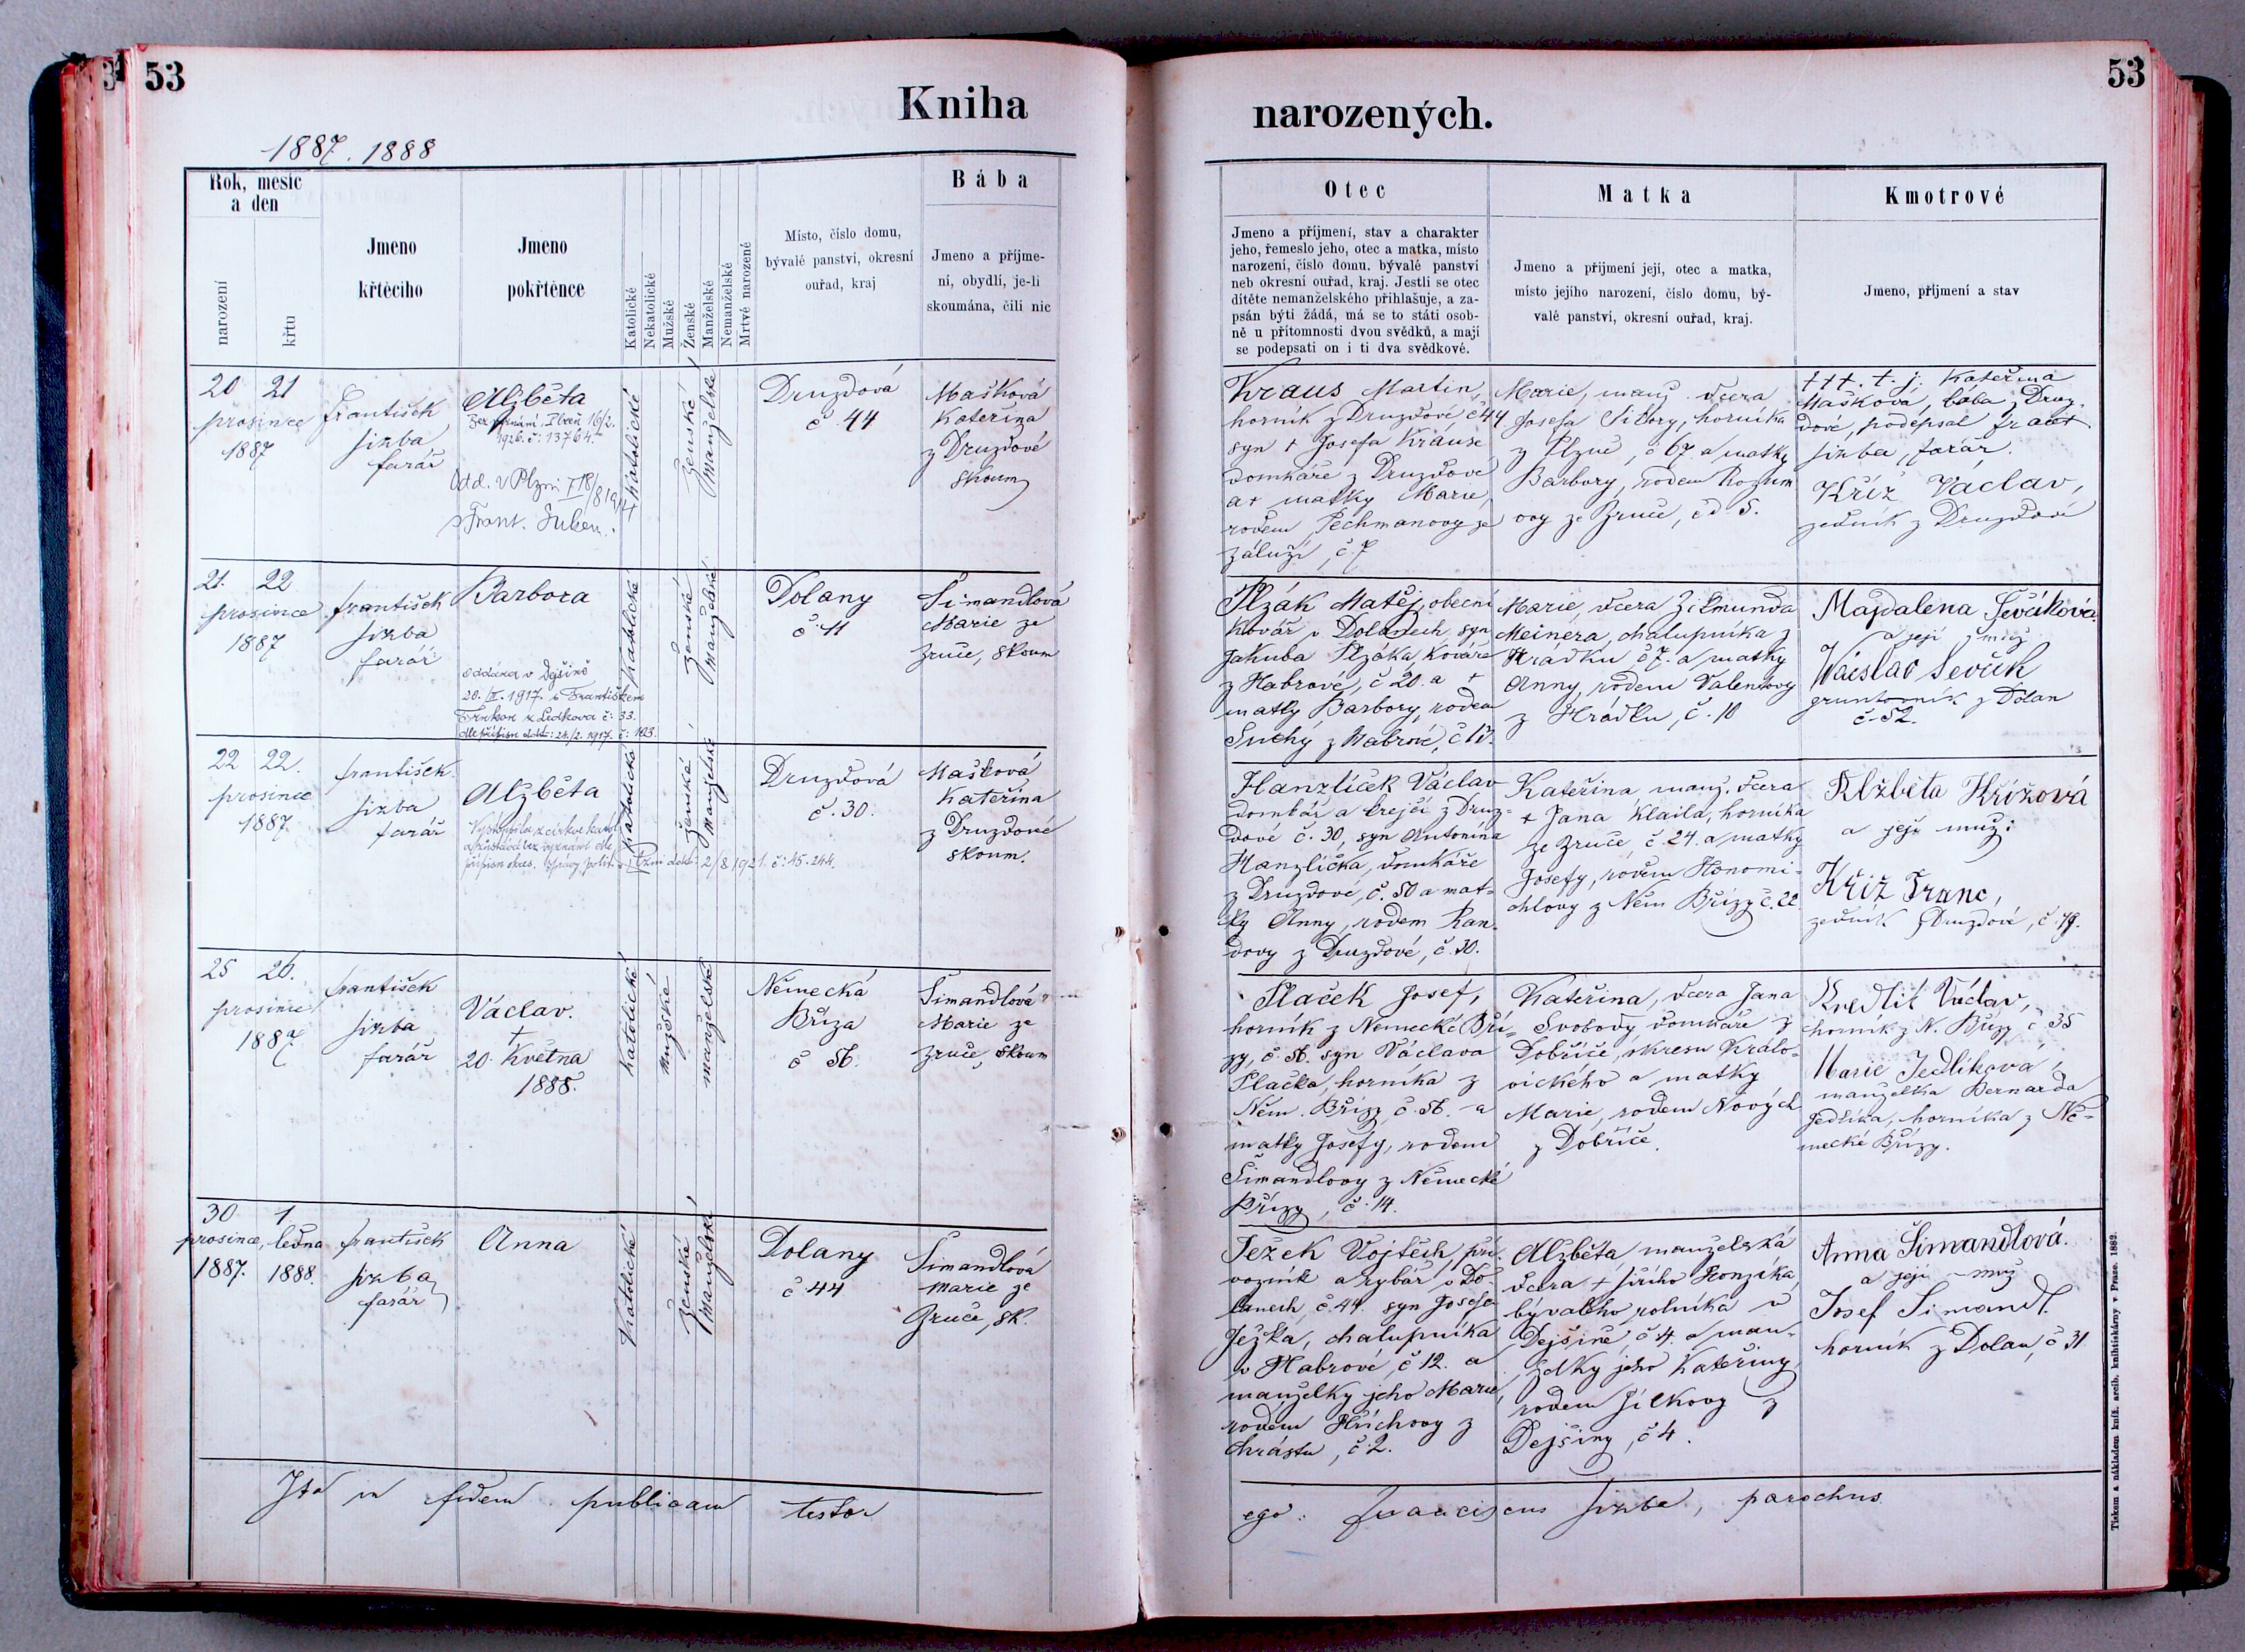 53
Kniha
1887. 1888
Rok, mesíc
a den
narození
křtu
Jmeno
křtěcího
Jmeno
pokřtěnce
Katolické
Nekatolické
Mužské
Ženské
Manželské
Nemanželské
Mrtvé narozené
Místo, číslo domu,
bývalé panství, okresní
ouřad, kraj
Bába
Jmeno a příjme-
ní, obydlí, je-li
skoumána, čili nic
20 21
prosince
1887
František
Jizba
farář
Alžběta
Bez vyznání, Plzeň 16/2.
1926. č: 13764.
Odd. v Plzni I 18/8 1914
s Frant.
katolické
ženské
manželské
Druzdová
č 44
Mašková
Kateřina
z Druzdové
skoum
21. 22
prosince
1887
František
Jizba
farář
Barbora
oddána v Dýšině
20./II. 1917. s Františkem
z Ledkova č: 33.
dle přípisu ddto: 24./2. 1917. č: 103.
katolické
ženské
manželské
Dolany
č. 11
Šimandlová
Marie ze
Zruče, skoum
22 22.
prosince
1887
František
Jizba
farář
Alžběta
Vystoupila z církve katol.
a zůstává bez vyznání dle
přípisu okres. správy polit. v Plzni ddto: 2/8 1921. č: 45.244.
katolické
ženské
manželské
Druzdová
č. 30.
Mašková
Kateřina
z Druzdové
skoum.
25 26.
prosince
1887
František
Jizba
farář
Václav.
+
20. Května
1888.
katolické
mužské
manželské
Německá
Bříza
č 56.
Šimandlová
Marie ze
Zruče, skoum
30 1
prosince, ledna
1887. 1888.
František
Jizba
farář
Anna
katolické
ženské
manželské
Dolany
č 44
Šimandlová
Marie ze
Zruče, sk.
Ita in fidem publicam testor
53
narozených.
Otec
Jmeno a příjmení, stav a charakter
jeho, řemeslo jeho, otec a matka, místo
narození, číslo domu. bývalé panství
neb okresní ouřad, kraj. Jestli se otec
dítěte nemanželského přihlašuje, a za-
psán býti žádá, má se to státi osob-
ně u přítomnosti dvou svědků, a mají
se podepsati on i ti dva svědkové.
Matka
Jmeno a příjmení její, otec a matka,
místo jejího narození, číslo domu, bý-
valé panství, okresní ouřad, kraj.
Kmotrové
Jmeno, příjmení a stav
Kraus Martin,
horník z Druzdové č 44.
syn + Josefa Krause
domkáře z Druzdové
a + matky Marie,
rodem Pechmanovy ze
Záluží, č. 7
Marie, manž. dcera
Josefa Sitory, horníka
z Plzně, č 67 a matky
Barbory, rodem Rozum
ovy ze Zruče, čd 5.
+++. t. j. Kateřina
Mašková, bába z Druz-
dové, podepsal
Jizba, farář.
Kříž Václav,
zedník z Druzdové
Plzák Matěj, obecní
kovář v Dolanech, syn
Jakuba Plzáka, kováře
z Habrové, č 20. a +
matky Barbory, rodem
Suchý z Habrové, č 13.
Marie, dcera Zikmunda
Meinera, chalupníka z
Hrádku, č 7. a matky
Anny, rodem Valentovy
z Hrádku, č. 10
Majdalena Ševčíková
a její muž
Wácslav Sevčik
gruntovník z Dolan
č-52.
Hanzlíček Václav
domkář a krejčí z Druz-
dové č. 30, syn Antonína
Hanzlíčka, domkáře
z Druzdové, č. 30 a mat-
ky Anny, rodem Ran-
dovy z Druzdové, č. 30.
Kateřina manž. dcera
+ Jana Klaila, horníka
ze Zruče, č. 24. a matky
Josefy, rodem Honomi-
chlovy z Něm Břízy č. 22
Alžběta Křížová
a její muž:
Kříž Franc,
zedník z Druzdové, č. 79.
Plaček Josef,
horník z Německé Bří-
zy, č. 56. syn Václava
Plačka, horníka z
Něm. Břízy, č. 56. a
matky Josefy, rodem
Šimandlovy z Německé
Břízy, č. 14.
Kateřina, dcera Jana
Svobody domkáře z
Dobříče, okresu Králo-
vického a matky
Marie, rodem Nových
z Dobříče.
Václav,
horník z N. Břízy č 35
Marie Jedlíková,
manželka Bernarda
Jedlíka, horníka z Ně-
mecké Břízy.
Ježek Vojtěch, pří-
vozník a rybář v Do-
lanech, č. 44. syn Josefa
Ježka, chalupníka
v Habrové, č 12. a
manželky jeho Marie
rodem Hříchovy z
Chrástu, č. 2.
Alžběta manželská
dcera + Jiřího Honzíka,
bývalého rolníka v
Dejšině, č 4. a man-
želky jeho Kateřiny,
rodem Jílkovy z
Dejšiny, č 4.
Anna Šimandlová.
a její muž
Josef Simandl.
horník z Dolan, č 31
ego: Franciscus Jizba, parochus
Tiskem a nákladem kníž. arcib. knihtiskárny v Praze. 1882.